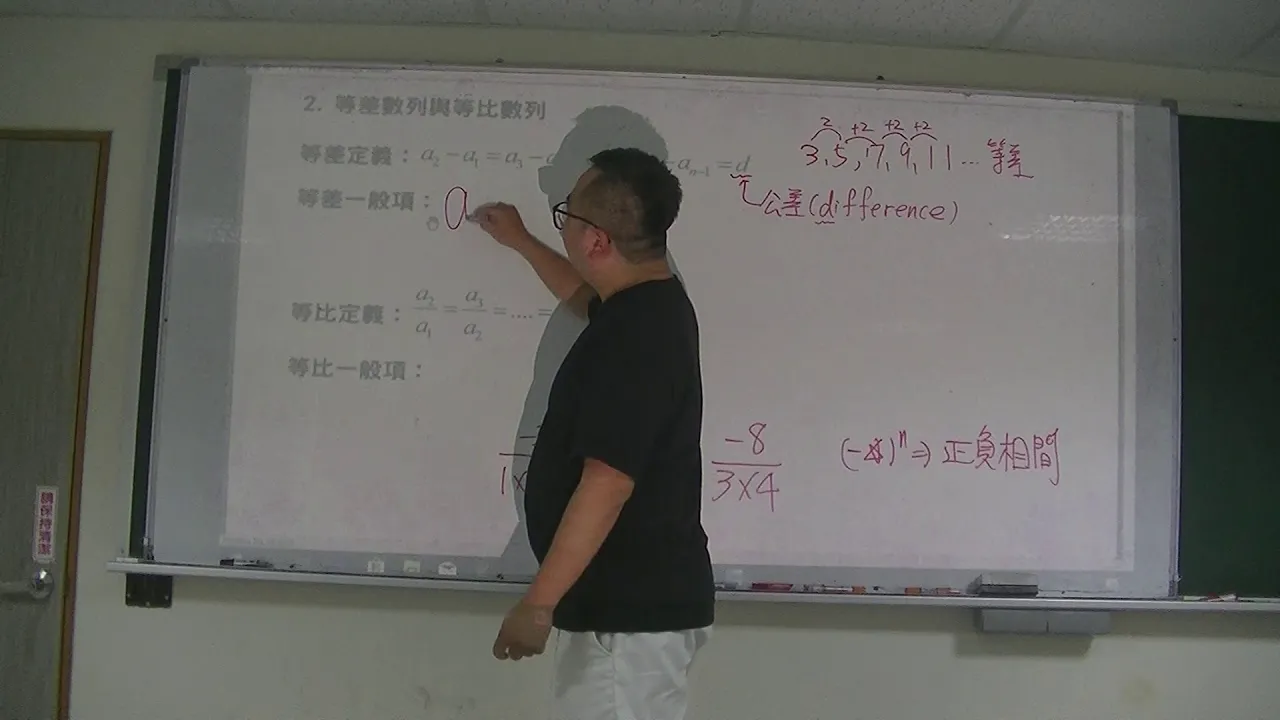 2. 等差數列與等比數列
等差定義：a₂ − a₁ = a₃ − aₙ₋₁ = d
等差一般項：a
等比定義：a₂/a₁ = a₃/a₂ = .... =
等比一般項：
2 +2 +2 +2
3, 5, 7, 9, 11 ... 等差
公差(difference)
1×
-8/3×4
正負相間
請保持清潔